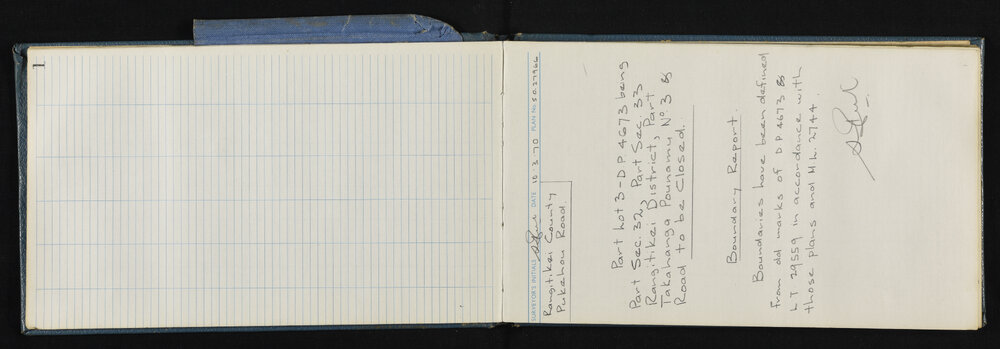 1
SURVEYOR'S INITIALS DATE 10.3.70 PLAN No. S.O.27966
Rangitikei County
Pukehou Road.
Part Lot 3-DP 4673 being
Part Sec. 32, Part Sec. 33
Rangitikei District, Part
Takahanga Pounamu No 3 &
Road to be Closed.
Boundary Report.
Boundaries have been defined
from old marks of DP 4673 &
LT 29559 in accordance with
those plans and ML. 2744.